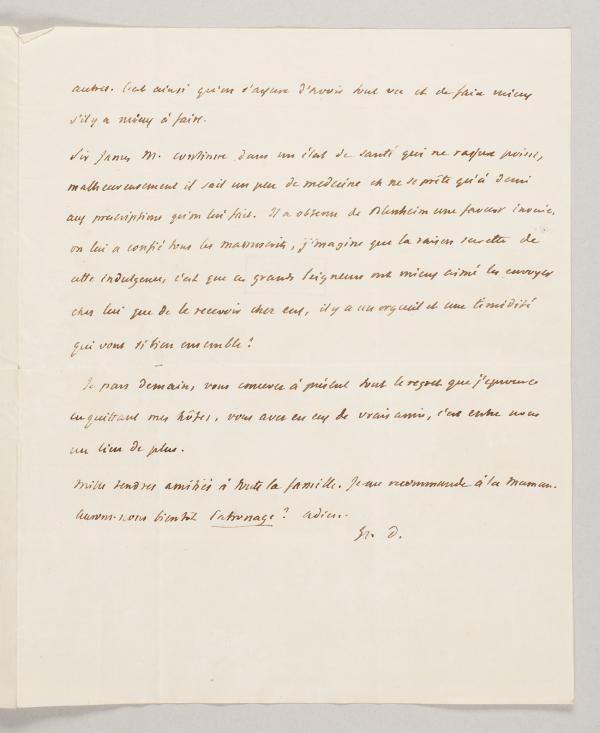 autres. C'est ainsi qu'on s'assure d'avoir tout vu et de faire mieux
s'il y a mieux à faire.
Sir James M. continue dans un état de santé qui ne rassure point,
malheureusement il sait un peu de medecine et ne se prête qu'à demi
aux prescriptions qu'on lui fait. Il a obtenu de Blenheim une faveur inouie,
on lui a confié tous les manuscrits, j'imagine que la raison secrette de
cette indulgence, c'est que ces grands seigneurs ont mieux aimé les envoyer
chez lui que de le recevoir chez eux, il y a un orgueil et une timidité
qui vont si bien ensemble!
Je pars demain, vous concevez à présent tout le regret que j'éprouve
en quittant mes hôtes, vous avez en eux de vrais amis, c'est entre nous
un lien de plus.
Mille tendres amitiés à toute la famille. Je me recommande à la Maman.
Aurons-nous bientôt Patronage? adieu.
D.